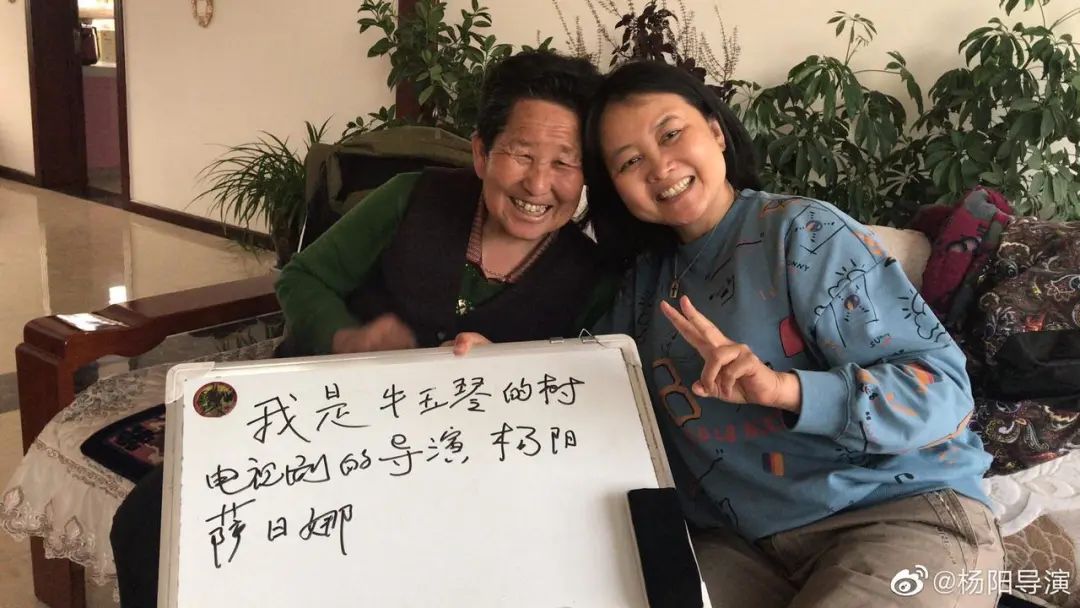 我是牛玉琴的树
电视剧的导演杨阳
萨日娜
@杨阳导演